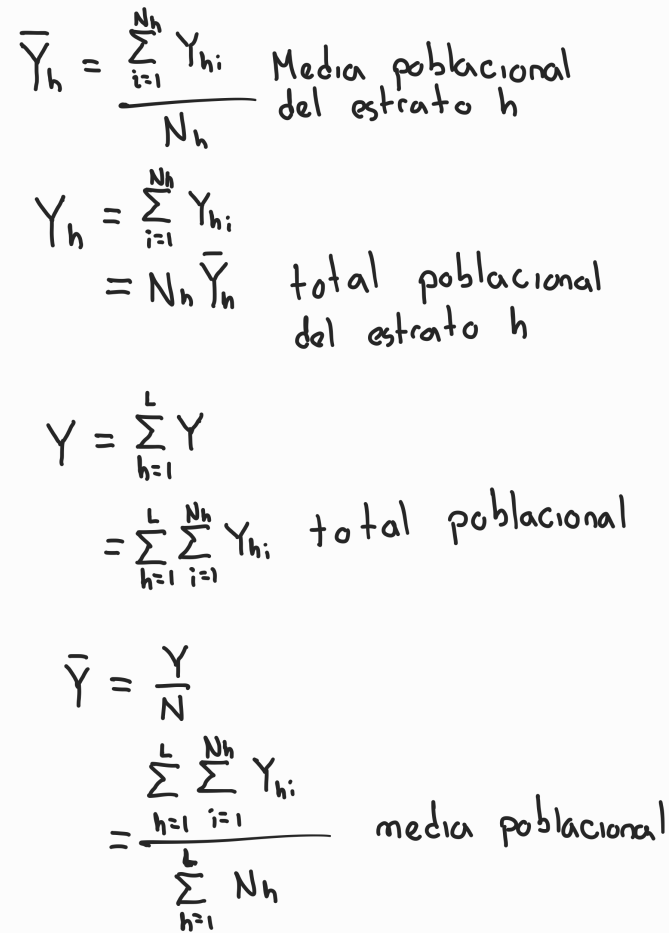 Ȳₕ = ∑ᵢ₌₁^Nₕ Yₕᵢ / Nₕ Media poblacional
del estrato h
Yₕ = ∑ᵢ₌₁^Nₕ Yₕᵢ
= Nₕ Ȳₕ total poblacional
del estrato h
Y = ∑ₕ₌₁^L Y
= ∑ₕ₌₁^L ∑ᵢ₌₁^Nₕ Yₕᵢ total poblacional
Ȳ = Y / N
= ∑ₕ₌₁^L ∑ᵢ₌₁^Nₕ Yₕᵢ / ∑ₕ₌₁^L Nₕ media poblacional